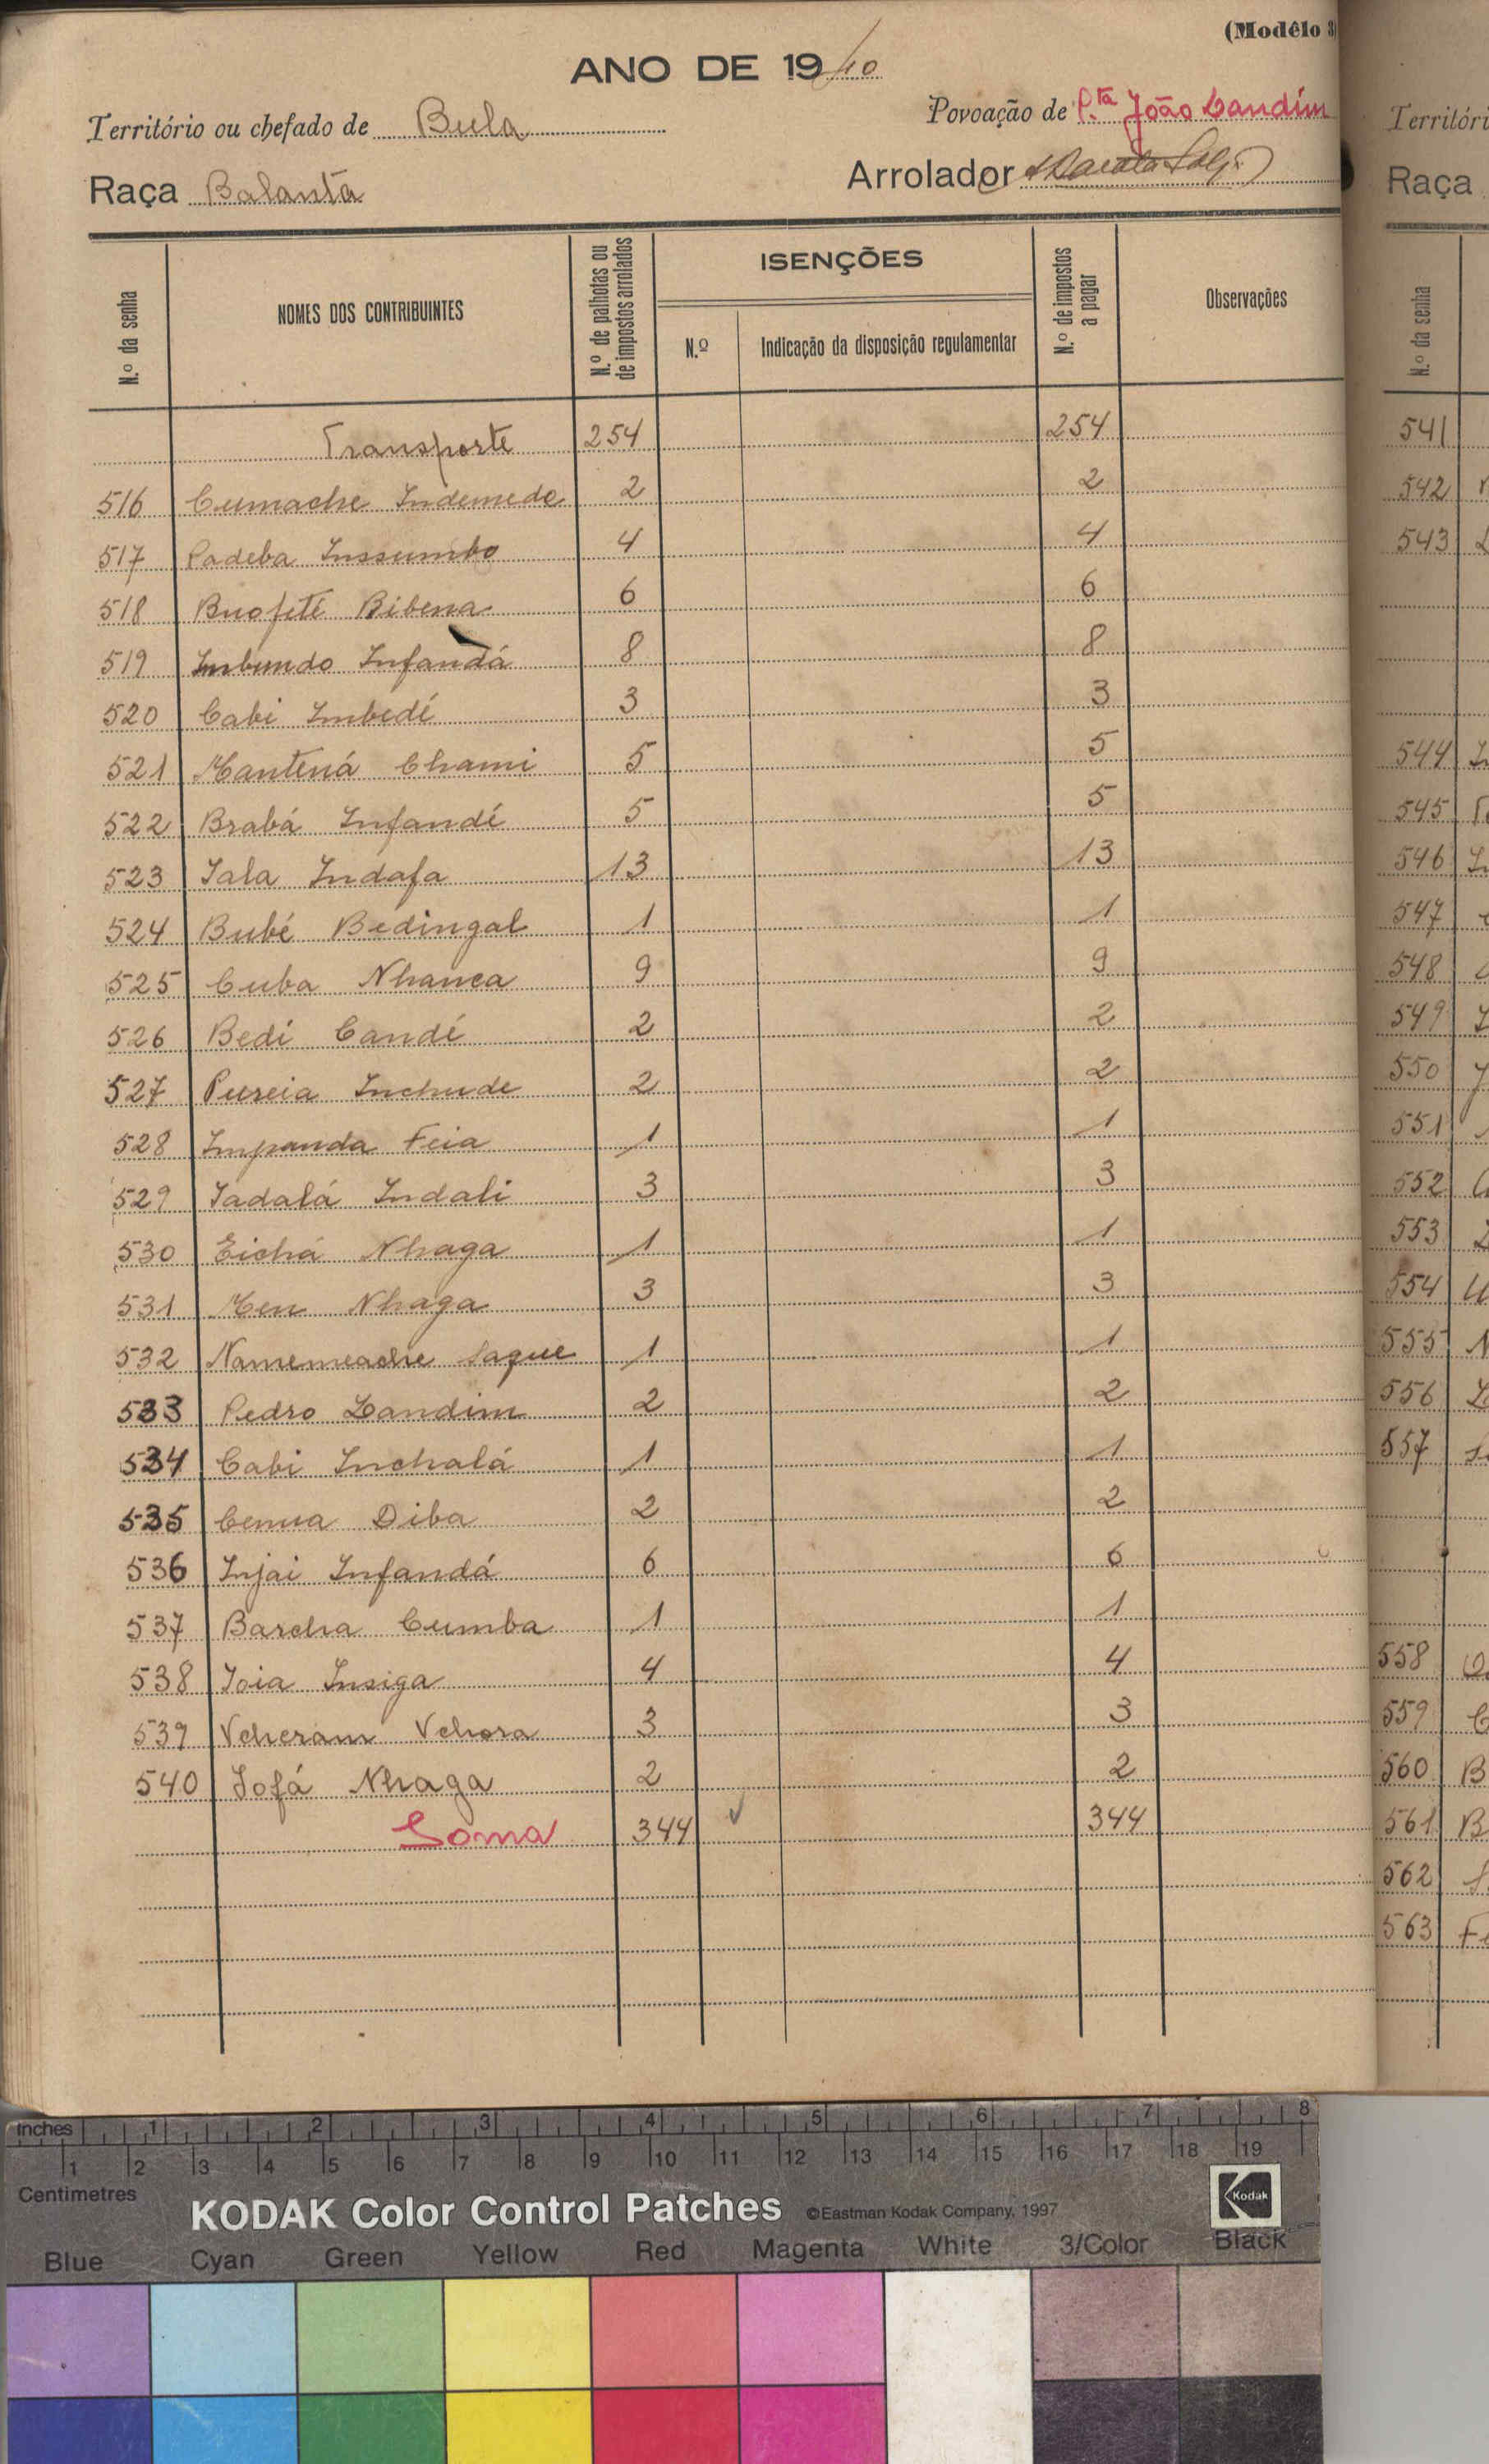 (Modêlo 3)
ANO DE 1940
Território ou chefado de Bula
Povoação de P.ta João Landim
Raça Balanta
Arrolador
N.º da senha
NOMES DOS CONTRIBUINTES
N.º de palhotas ou de impostos arrolados
ISENÇÕES
N.º
Indicação da disposição regulamentar
N.º de impostos a pagar
Observações
Transporte 254 254
516 Cumache Indemede 2 2
517 Padeba Inssumbo 4 4
518 Buofité Bibena 6 6
519 Inbundo Infandá 8 8
520 Cabi Imbedé 3 3
521 Mantená Chami 5 5
522 Brabá Infandé 5 5
523 Iala Indafa 13 13
524 Bubé Bedingal 1 1
525 Cuba Nhanca 9 9
526 Bedi Candé 2 2
527 Pureia Inchude 2 2
528 Impanda Feia 1 1
529 Iadalá Indali 3 3
530 Eichá Nhaga 1 1
531 Men Nhaga 3 3
532 Namemeache Saque 1 1
533 Pedro Landim 2 2
534 Cabi Inchalá 1 1
535 Cenua Diba 2 2
536 Injai Infandá 6 6
537 Barcha Cumba 1 1
538 Ioia Insiga 4 4
539 Vcheram Vchora 3 3
540 Iofá Nhaga 2 2
Soma 344 344
Territóri
Raça
N.º da senha
541
542
543
544
545
546
547
548
549
550
551
552
553
554
555
556
557
558
559
560
561
562
563
Inches 1 2 3 4 5 6 7 8
1 2 3 4 5 6 7 8 9 10 11 12 13 14 15 16 17 18 19
Centimetres
KODAK Color Control Patches ©Eastman Kodak Company, 1997 Kodak
Blue Cyan Green Yellow Red Magenta White 3/Color Black